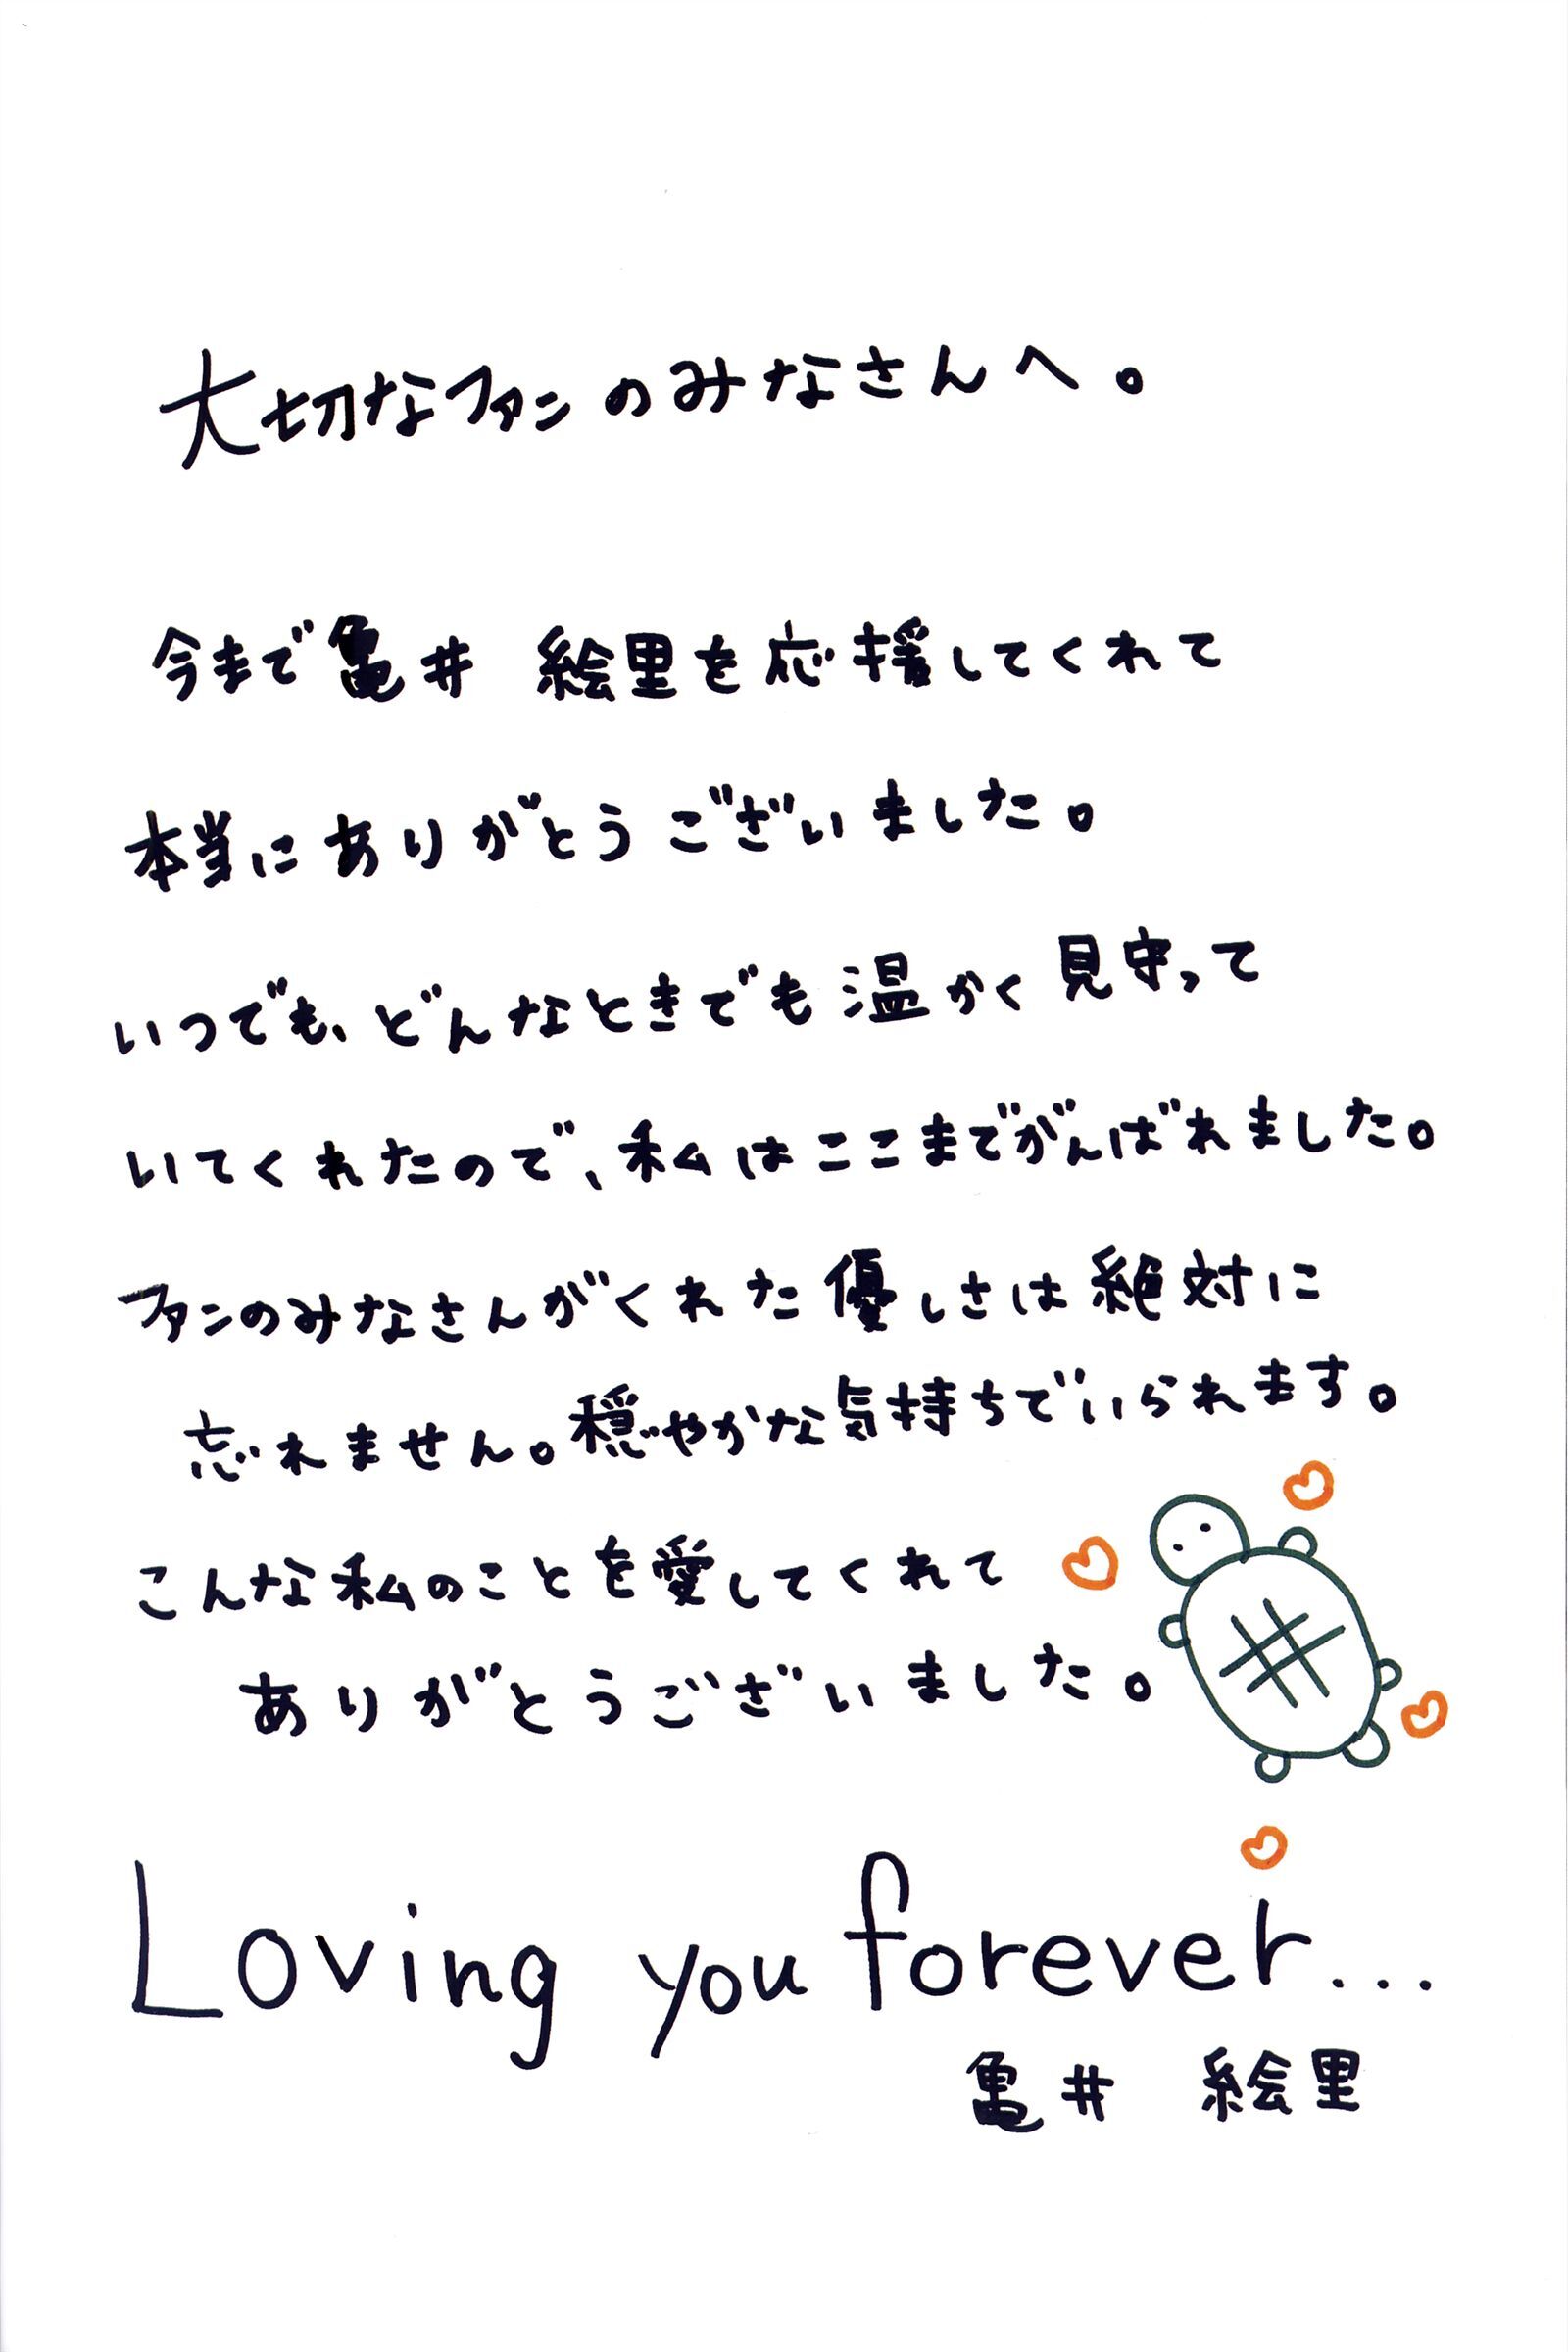 大切なファンのみなさんへ。
今まで亀井 絵里を応援してくれて
本当にありがとうございました。
いつでも、どんなときでも温かく見守って
いてくれたので、私はここまでがんばれました。
ファンのみなさんがくれた優しさは絶対に
忘れません。穏やかな気持ちでいられます。
こんな私のことを愛してくれて
ありがとうございました。
Loving you forever...
亀井 絵里